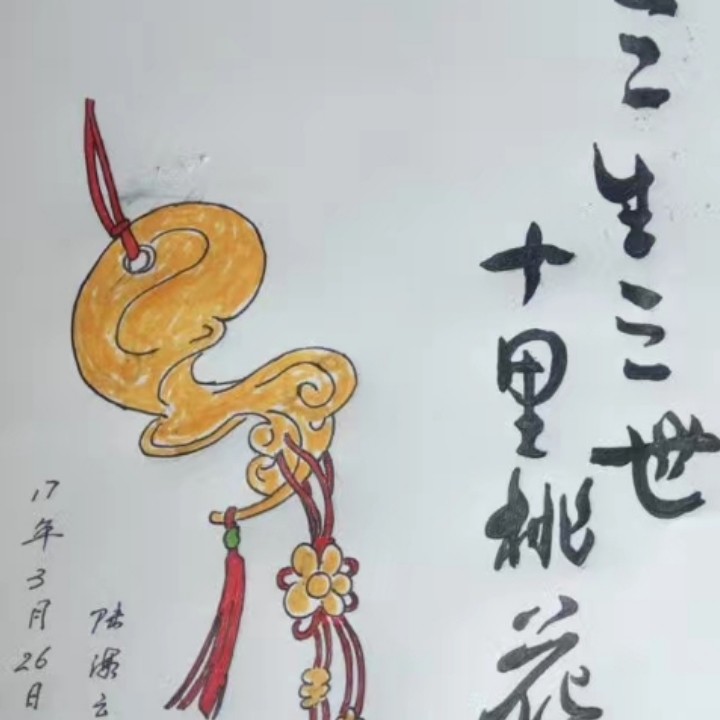 三生三世
十里桃花
陆云
17年3月26日